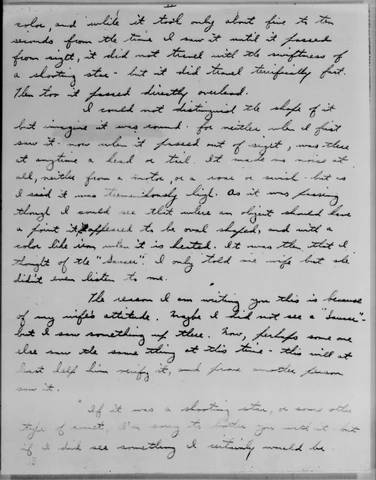 color, and while it took only about five to ten
seconds from the time I saw it until it passed
from sight, it did not travel with the swiftness of
a shooting star - but it did travel terrifically fast.
Then too it passed directly overhead.
I could not distinguish the shape of it
but imagine it was round. For neither when I first
saw it nor when it passed out of sight, was there
at anytime a head or tail. It made no noise at
all, neither from a motor, or a roar or swish. but as
I said it was tremendously high. As it was passing
though I could see that where an object should have
a point it appeared to be oval shaped, and with a
color like iron when it is heated. It was then that I
thought of the "Saucer". I only told my wife but she
didn't even listen to me.
The reason I am writing you this is because
of my wife's attitude. Maybe I did not see a "Saucer"-
but I saw something up there. Now, perhaps some one
else saw the same thing at this time - this will at
least help him verify it, and prove another person
saw it.
If it was a shooting star, or some other
type of comet, I'm sorry to bother you with it but
if I did see something I certainly would be